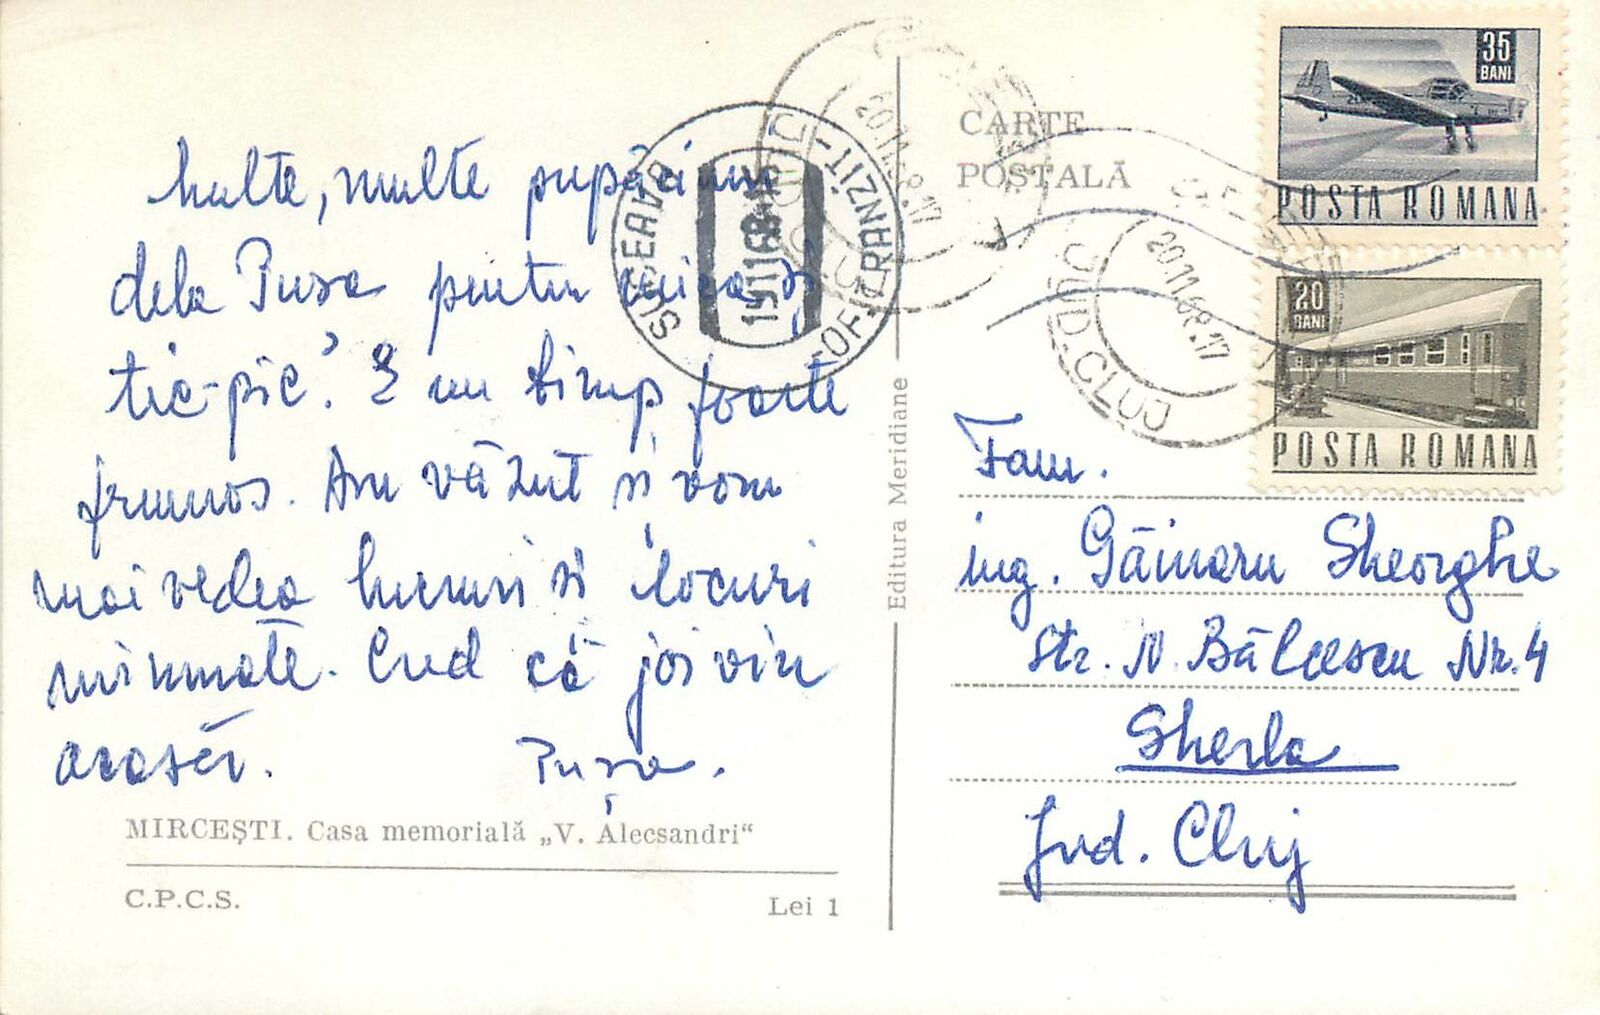 Multe, multe pupături
dela Pușa pentru
tic-pic. E un timp foarte
frumos. Am văzut și vom
mai vedea lucruri și locuri
minunate. Cred că joi vin
acasă. Pușa.
MIRCEȘTI. Casa memorială „V. Alecsandri“
C.P.C.S.
Lei 1
Editura Meridiane
SUCEAVA
-OF.1.TRANZIT-
19 11 68
CARTE
POȘTALĂ
20.11.68.17
JUD. CLUJ
20.11.68.17
35
BANI
POSTA ROMANA
20
BANI
POSTA ROMANA
Fam.
ing. Găinaru Gheorghe
Str. N. Bălcescu Nr. 4
Gherla
Jud. Cluj